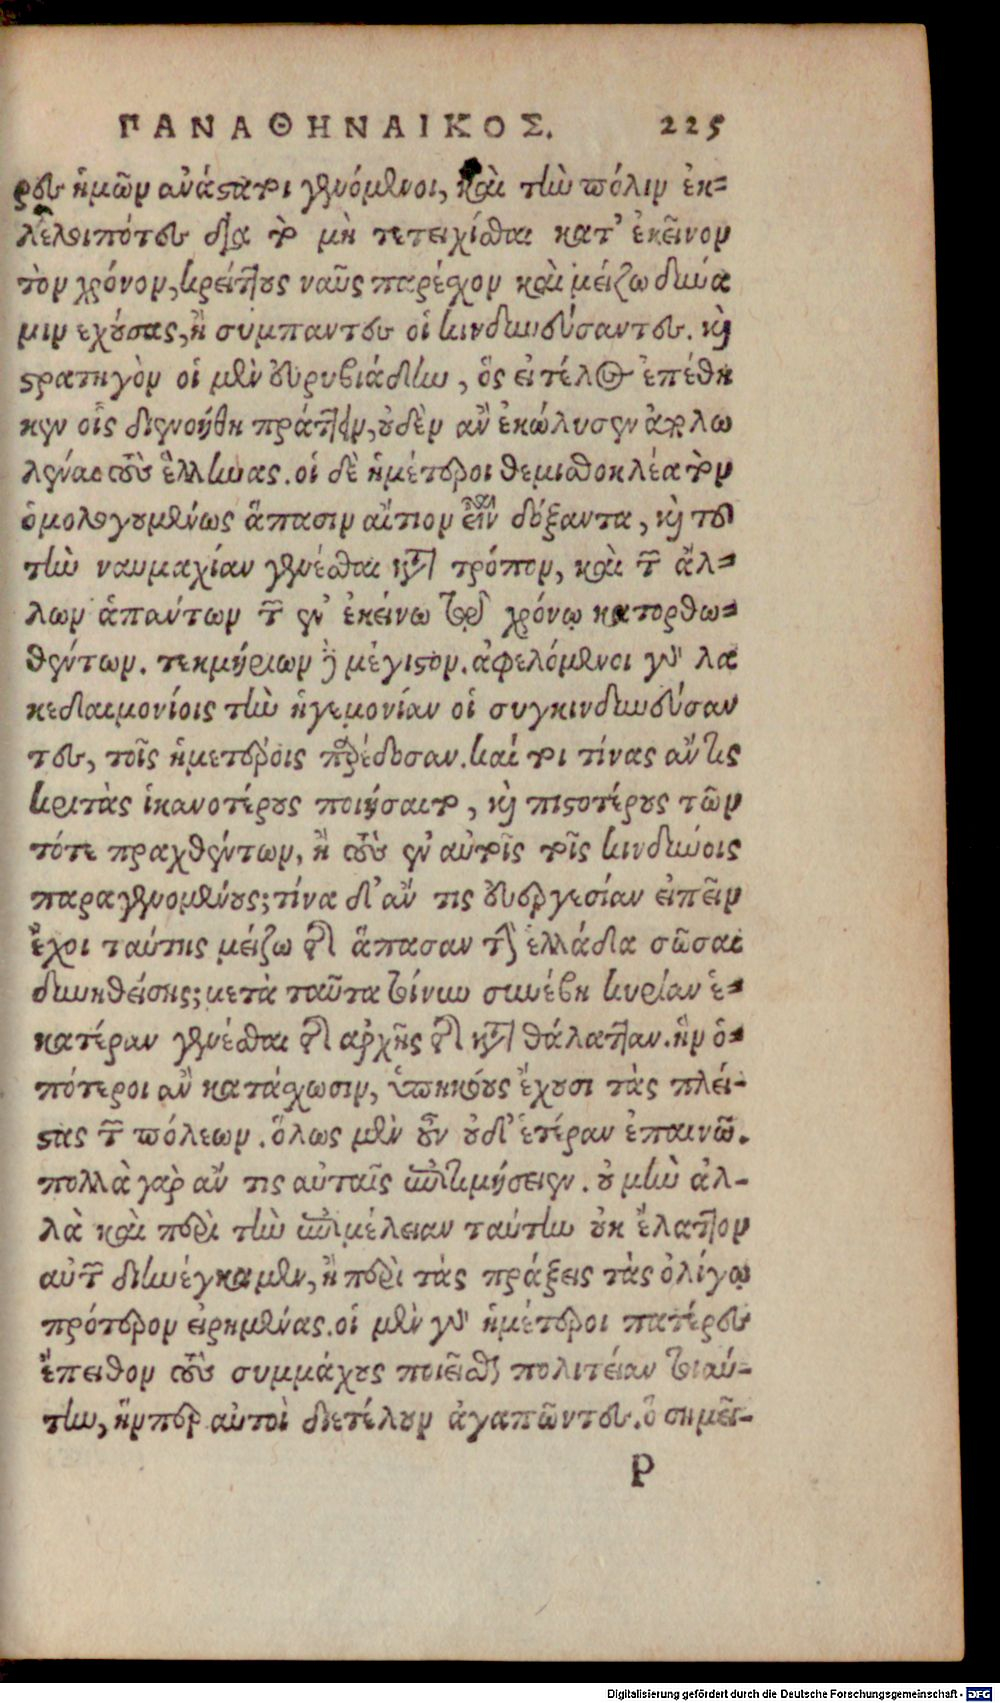 ΠΑΝΑΘΗΝΑΙΚΟΣ. 225
ρες ἡμῶν ἀνάστατοι γενόμενοι, καὶ τὴν πόλιν ἐκ=
λελοιπότες διὰ τὸ μὴ τετειχίσθαι κατ' ἐκεῖνον
τὸν χρόνον, κρείττους ναῦς παρέσχον καὶ μείζω δύνα
μιν εχούσας, ἢ συμπαντες οἱ κινδυνεύσαντες. καὶ
στρατηγὸν οἱ μὲν ἐυρυβιάδην, ὃς ει τέλος ἐπέθη
κεν οἷς διενοήθη πράττειν, οὐδὲν ἂν ἐκώλυσεν ἀπολω
λέναι τοὺς ἕλληνας. οἱ δὲ ἡμέτεροι θεμισθοκλέα τὸν
ὁμολογουμένως ἅπασιν αἴτιον εἶναι δόξαντα, καὶ τοῦ
τὴν ναυμαχίαν γενέσθαι κατὰ τρόπον, καὶ τῶν ἄλ=
λων ἁπάντων τῶν ἐν ἐκείνω τῷ χρόνῳ κατορθω=
θέντων. τεκμήριον δὲ μέγιστον. ἀφελόμενοι γὰρ λα
κεδαιμονίοις τὴν ἡγεμονίαν οἱ συγκινδυνεύσαν
τες, τοῖς ἡμετέροις παρέδοσαν. καί τοι τίνας ἄν τις
κριτὰς ἱκανοτέρους ποιήσαιτο, καὶ πιστοτέρους τῶν
τότε πραχθέντων, ἢ τοὺς ἐν αὐτοῖς τοῖς κινδύνοις
παραγενομένους; τίνα δ' ἄν τις ἐυεργεσίαν ειπεῖν
ἔχοι ταύτης μείζω τῆς ἅπασαν τὴν ἑλλάδα σῶσαι
δυνηθείσης; μετὰ ταῦτα τοίνυν συνέβη κυρίαν ἑ=
κατέραν γενέσθαι τῆς αρχῆς τῆς κατὰ θάλατταν. ἣν ὁ=
πότεροι ἂν κατάσχωσιν, ὑπηκόους ἔχουσι τὰς πλεί-
στας τῶν πόλεων. ὅλως μὲν οὖν οὐδ' ἑτέραν ἐπαινῶ.
πολλὰ γὰρ ἄν τις αὐταῖς ἐπιτιμήσειεν. οὐ μὴν ἀλ-
λὰ καὶ περὶ τὴν ἐπιμέλειαν ταύτην οὐκ ἔλαττον
αὐτῶν διηνέγκαμεν, ἢ περὶ τὰς πράξεις τὰς ὀλίγῳ
πρότερον ειρημένας. οἱ μὲν γὰρ ἡμέτεροι πατέρες
ἔπειθον τοὺς συμμάχους ποιεῖσθαι πολιτείαν τοιαύ-
την, ἥνπερ αὐτοὶ διετέλουν ἀγαπῶντες. ὃ σημεῖ-
P
Digitalisierung gefördert durch die Deutsche Forschungsgemeinschaft - DFG